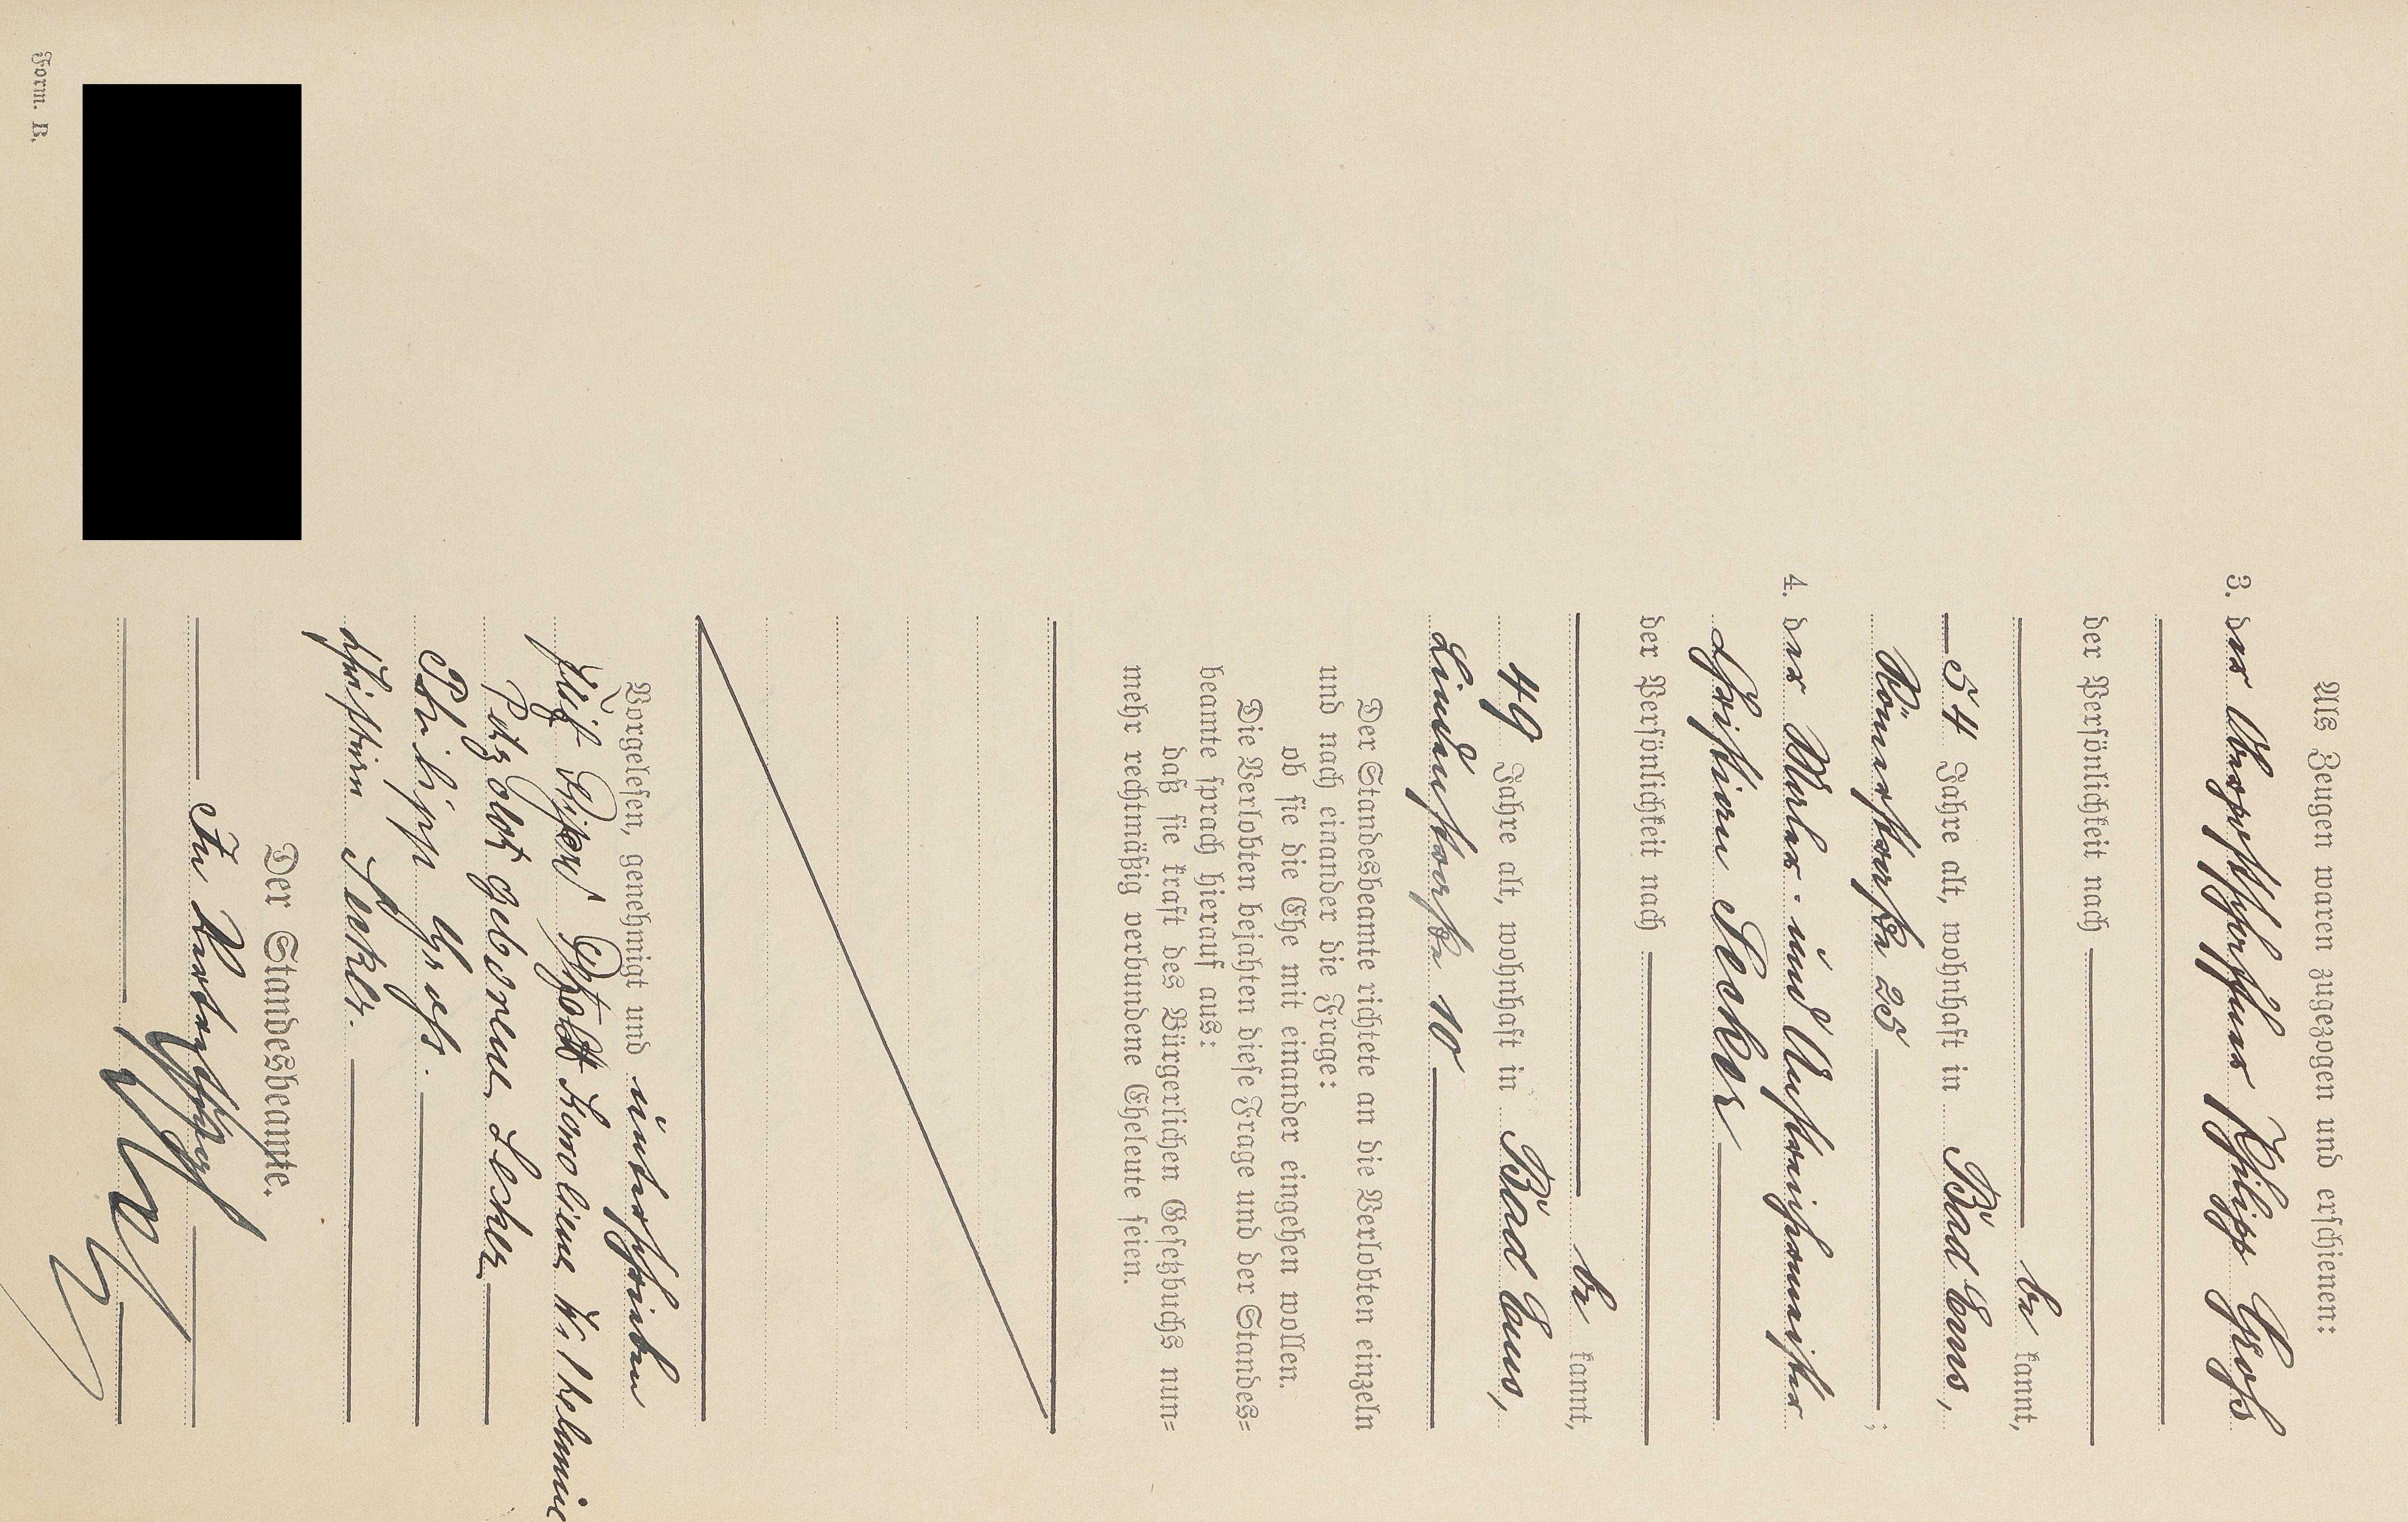 Als Zeugen waren zugezogen und erschienen:
3. der Philipp Groß
der Persönlichkeit nach
be kannt,
54 Jahre alt, wohnhaft in Bad Ems,
Römerstraße 25 ;
4. der Maler- und Anstreichermeister
Christian Secker
der Persönlichkeit nach
be kannt,
49 Jahre alt, wohnhaft in Bad Ems,
Lindenstraße 10
Der Standesbeamte richtete an die Verlobten einzeln
und nach einander die Frage:
ob sie die Ehe mit einander eingehen wollen.
Die Verlobten bejahten diese Frage und der Standes=
beamte sprach hierauf aus:
daß sie kraft des Bürgerlichen Gesetzbuchs nun=
mehr rechtmäßig verbundene Eheleute seien.
Vorgelesen, genehmigt und unterschrieben
Karoline Wilhelmine
Petzoldt geborene Secker
Philipp Groß.
Christian Secker.
Der Standesbeamte.
In Vertretung
Form. B.